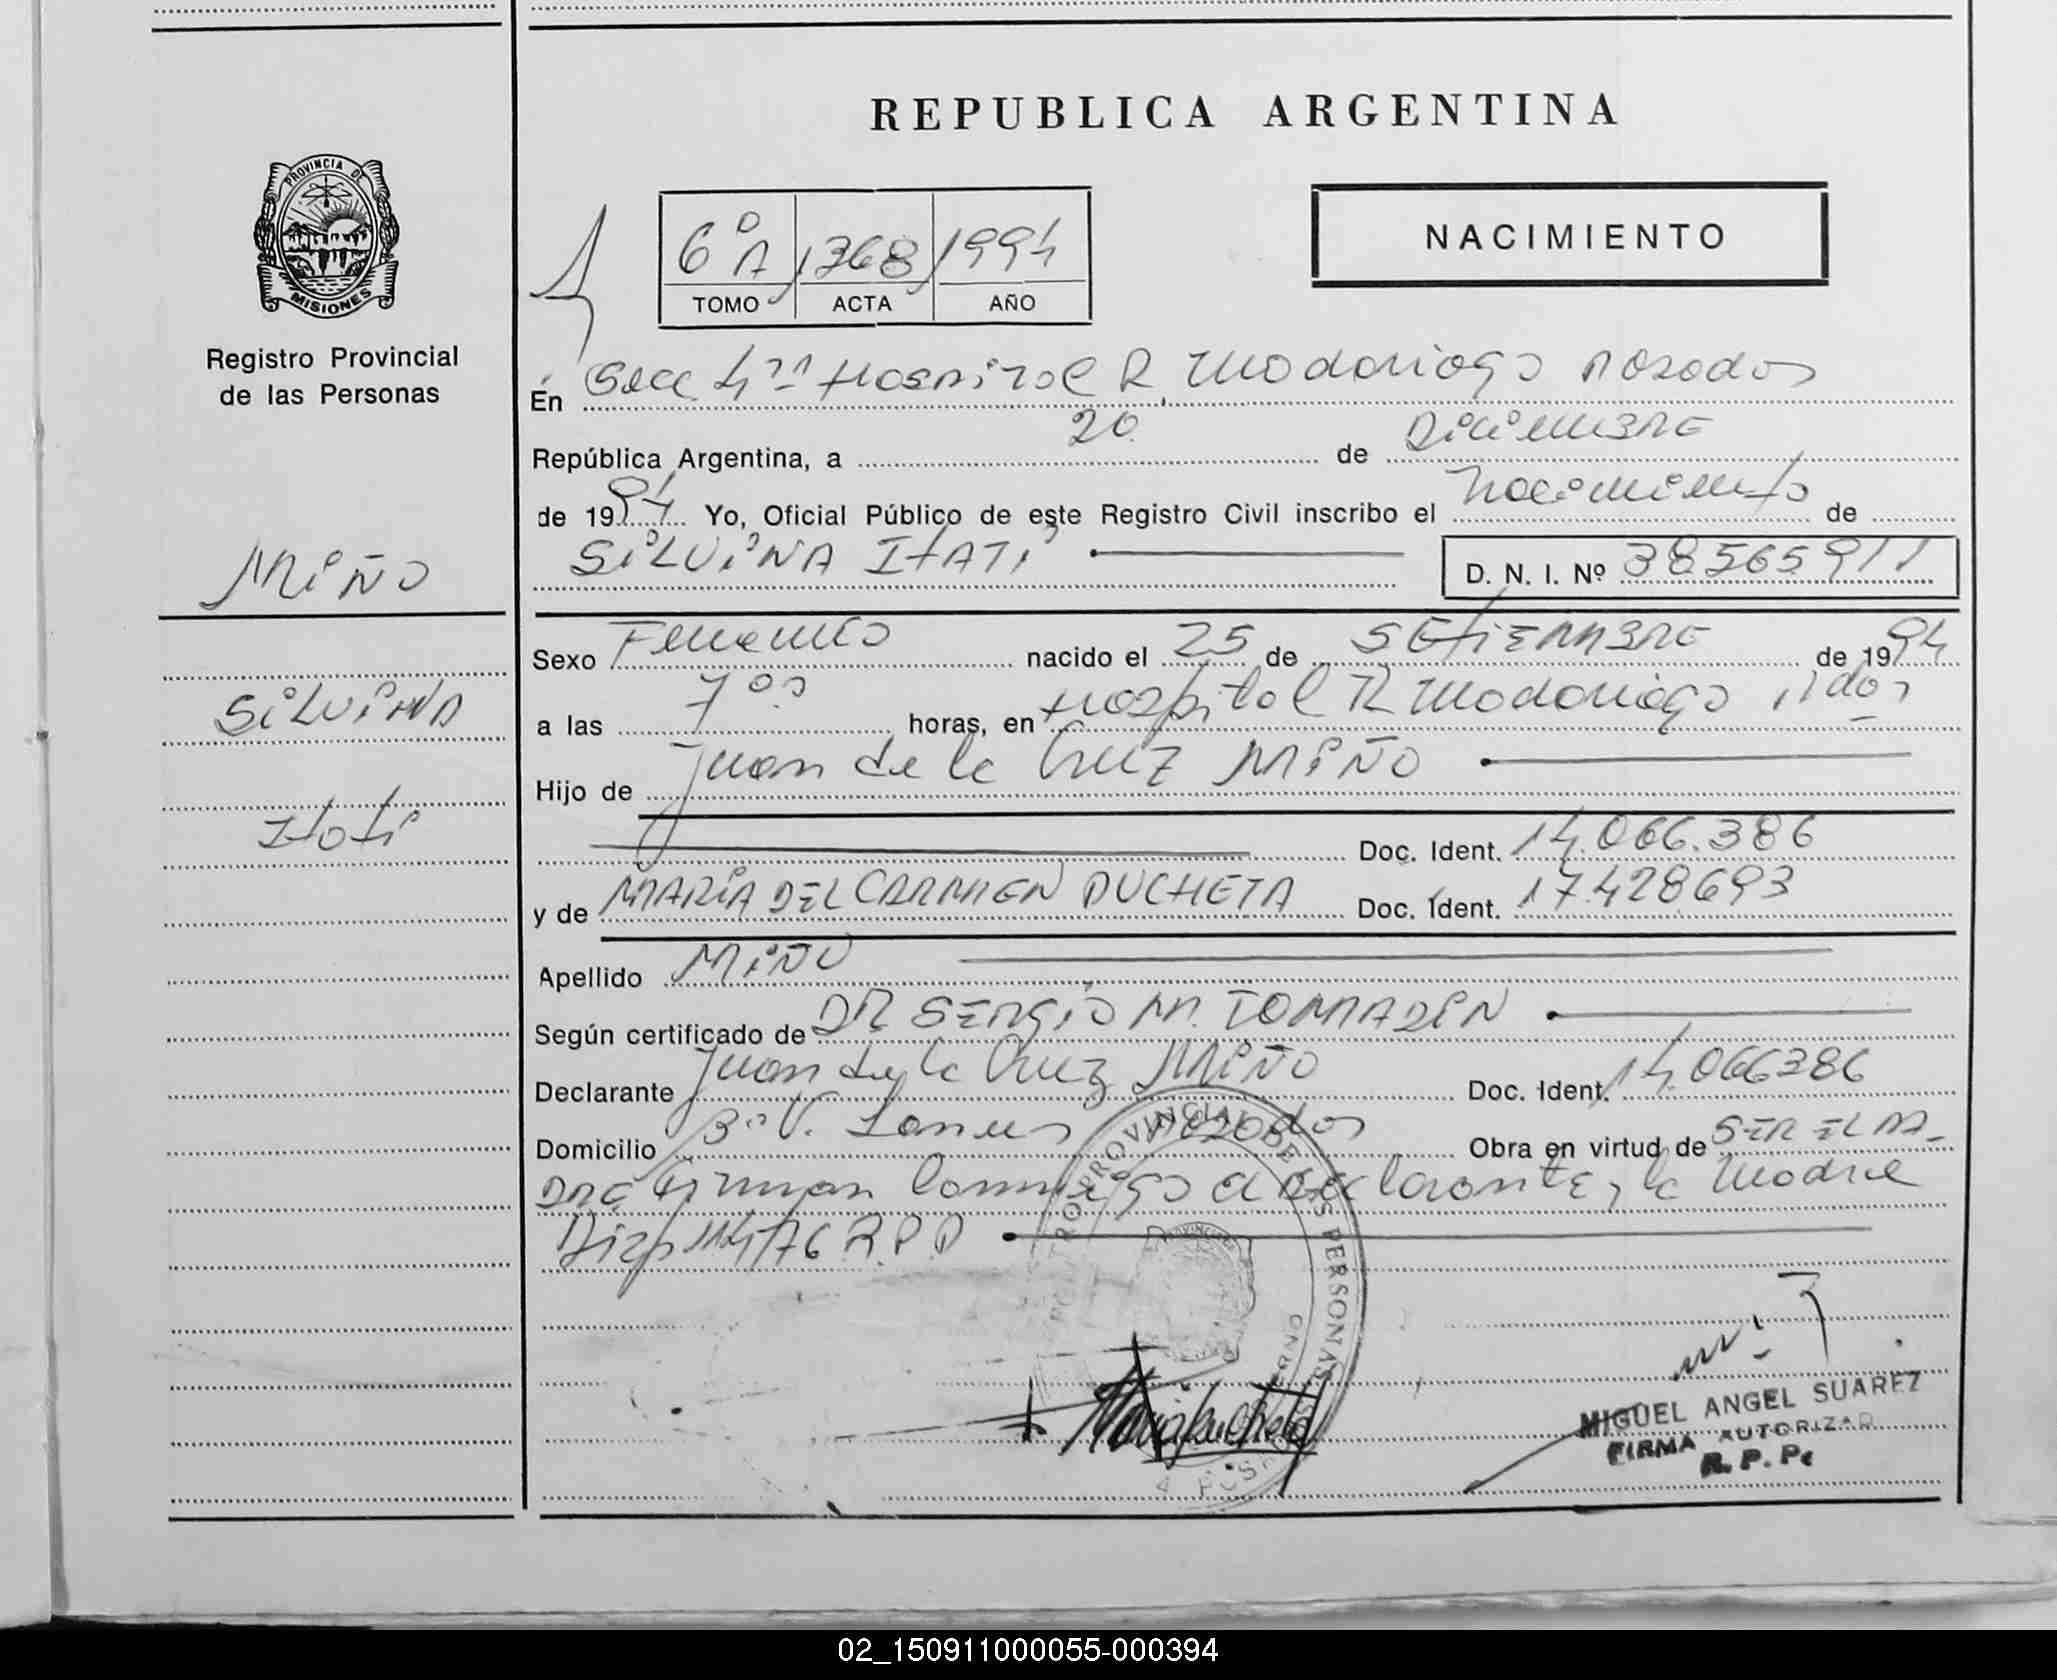 REPUBLICA ARGENTINA
PROVINCIA DE
MISIONES
Registro Provincial
de las Personas
6º A 1368 1994
TOMO ACTA AÑO
NACIMIENTO
En Secc 4ta Hospital R Madariaga Posadas
República Argentina, a 20 de Diciembre
de 1994 Yo, Oficial Público de este Registro Civil inscribo el Nacimiento de
SILVINA ITATI D. N. I. Nº 38565911
MIÑO
SILVINA
Itati
Sexo Femenino nacido el 25 de SETIEMBRE de 1994
a las 7 00 horas, en Hospital R Madariaga
Hijo de Juan de la Cruz MIÑO
Doc. Ident. 14.066.386
y de MARIA DEL CARMEN PUCHETA Doc. Ident. 17.428693
Apellido MIÑO
Según certificado de DR SERGIO M. TOMADIN
Declarante Juan de la Cruz MIÑO Doc. Ident. 14.066386
Domicilio Bº V. Lanus Posadas Obra en virtud de SER EL PA-
DRE Firman Conmigo el Declarante, la Madre
Disp 114/76 R.P.P
REGISTRO PROVINCIAL DE LAS PERSONAS
MIGUEL ANGEL SUAREZ
FIRMA AUTORIZAD
R. P. P.
02_150911000055-000394